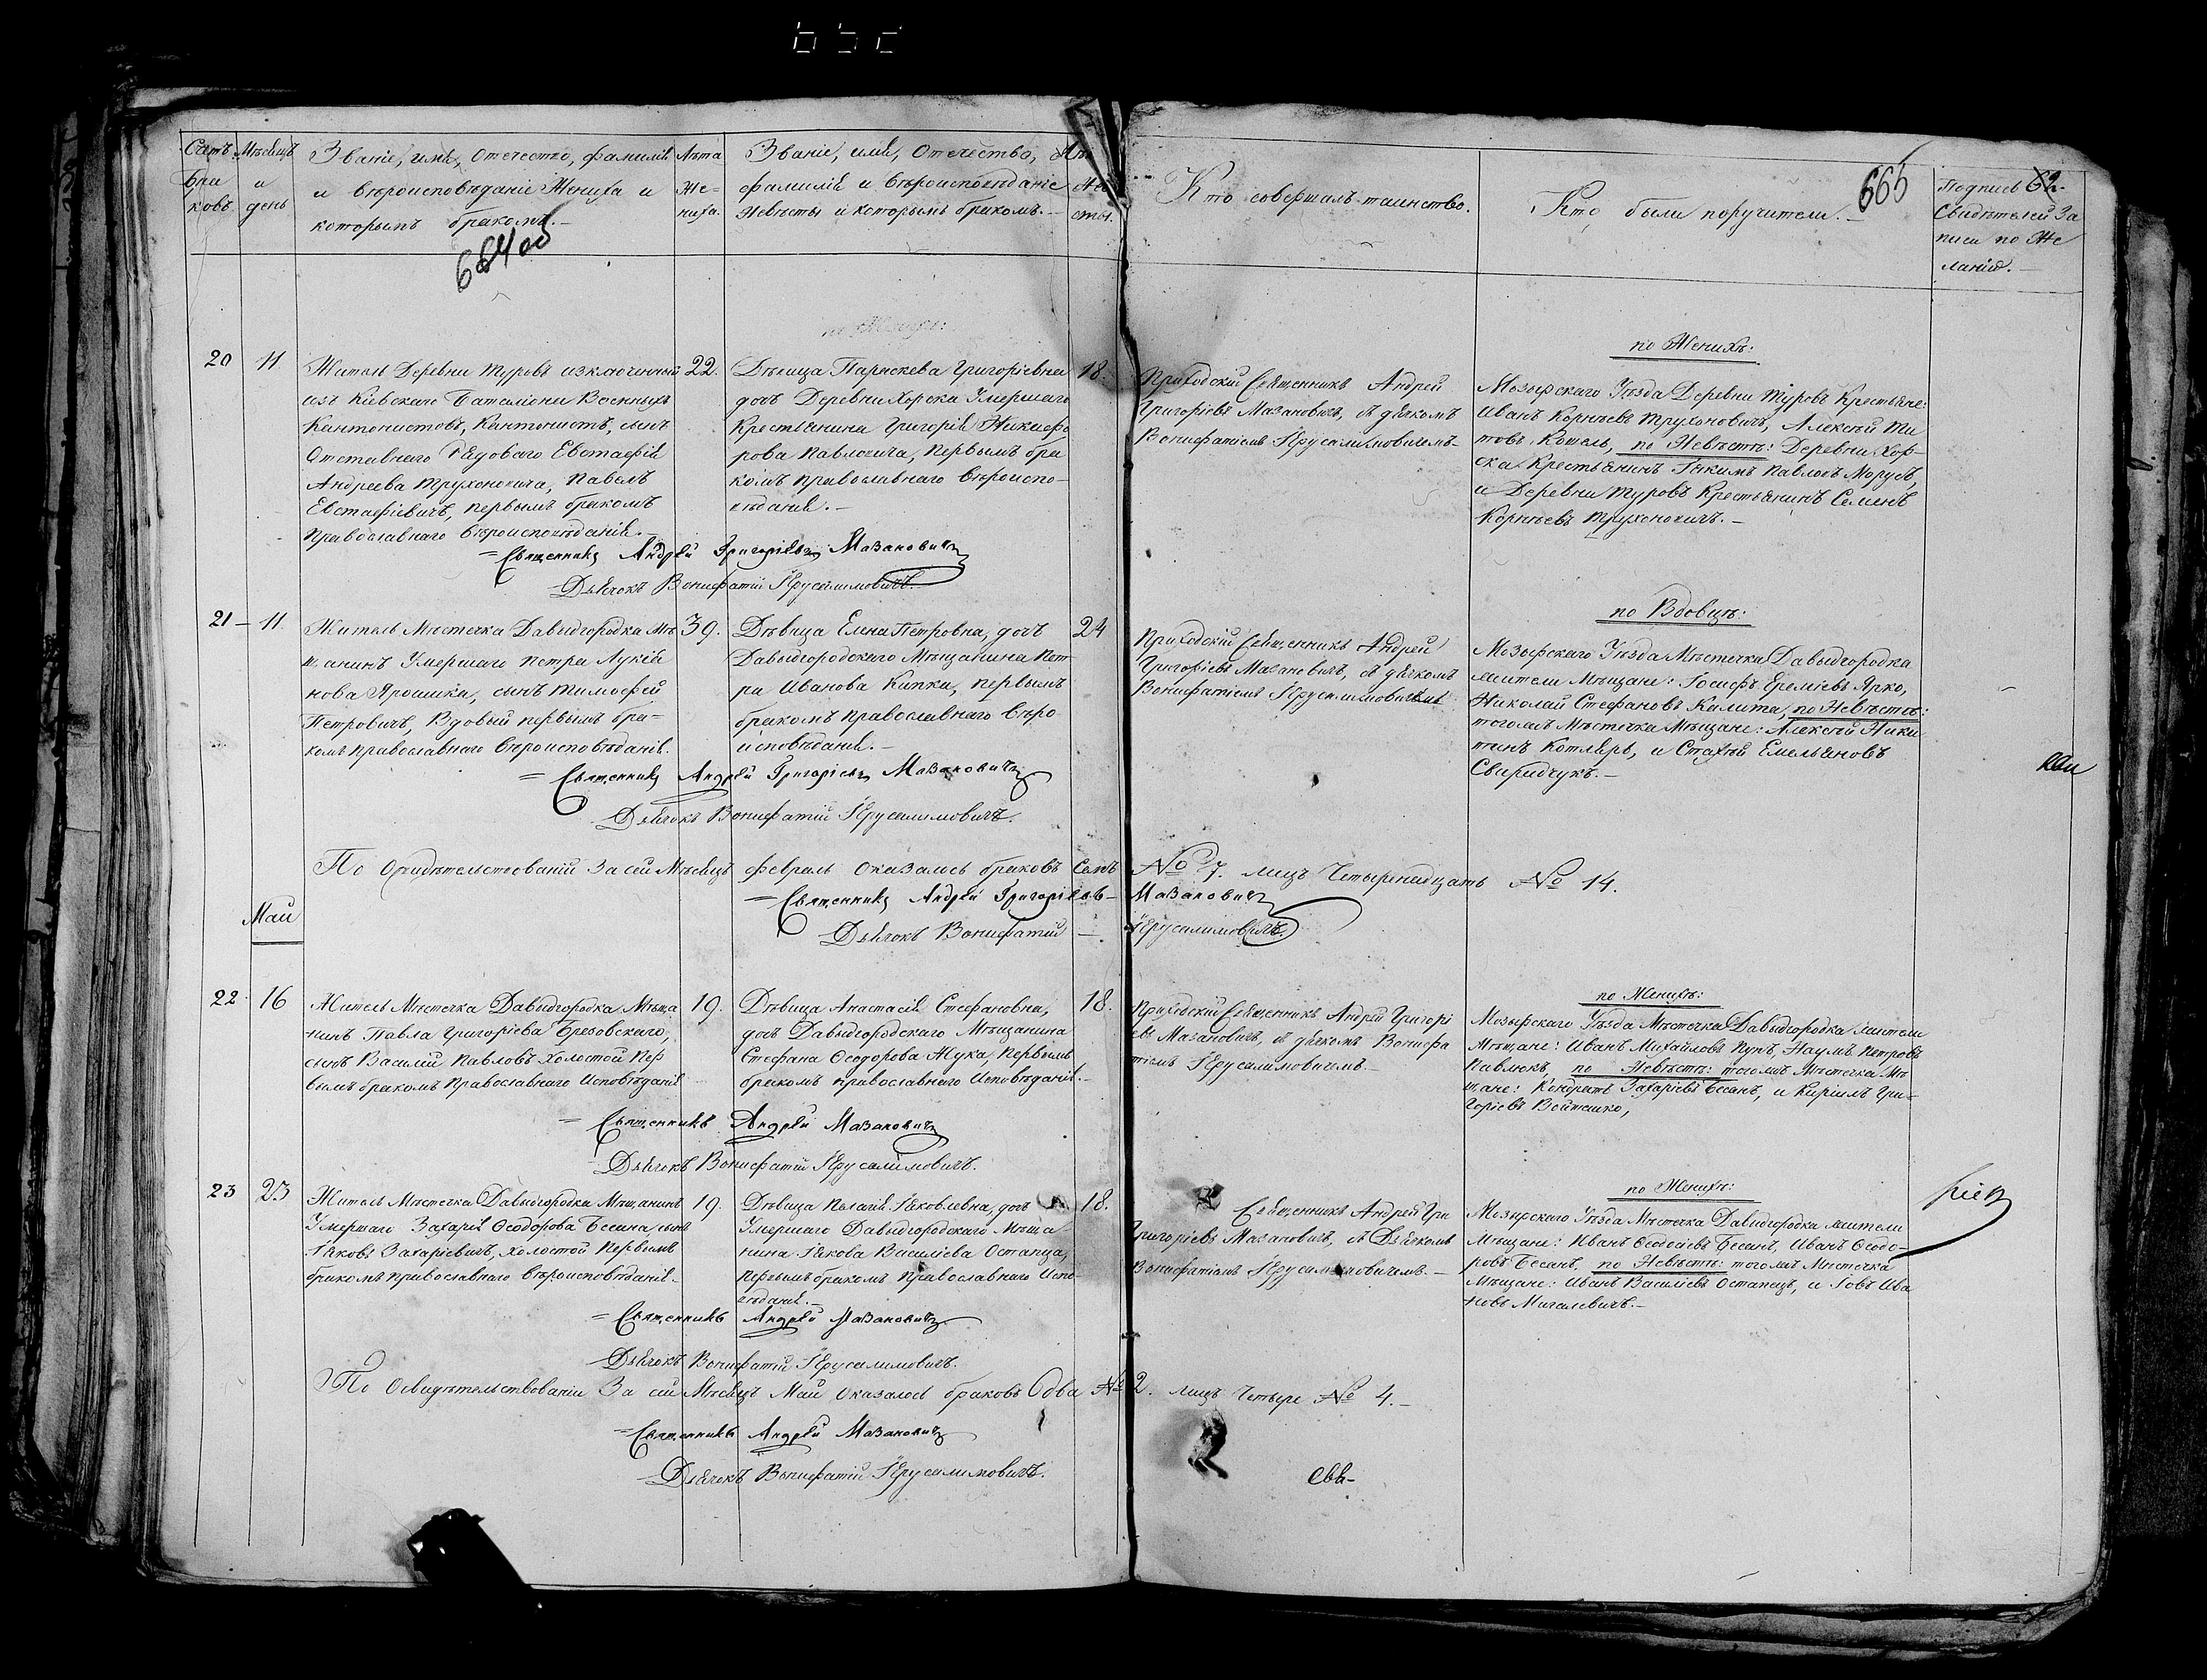 Мѣсяцъ
и
день
Званіе, имя, Отечество, фамилія
и вѣроисповѣданіе Жениха и
которымъ бракомъ.
Лѣта
Же-
ниха.
Званіе, имя, Отечество,
фамилія и вѣроисповѣданіе
Невѣсты и которымъ бракомъ.
Кто совершалъ таинство.
Кто были поручители.
665
Подпись
Свидѣтелей За
писи по Же
ланію.
20
11
Житель Деревни Туровъ изключенный
изъ Кіевскаго Баталіона Военныхъ
Кантонистовъ, Кантонистъ, сынъ
Отставнаго Рядоваго Евстафія
Андреева Трухоновича, Павелъ
Евстафіевичъ, первымъ бракомъ
Православнаго вѣроисповѣданія.
22.
Дѣвица Параскева Григоріевна
дочь Деревни Хорска Умершаго
Крестьянина Григорія Никифо
рова Павловича, Первымъ бра
комъ православнаго вѣроиспо-
вѣданія.
18.
Приходскій Священникъ Андрей
Григоріевъ Мазановичъ, съ дьячкомъ
Вонифатіемъ Іерусалимовичемъ
по Женихѣ:
Мозырскаго Уѣзда Деревни Туровъ Крестьяне:
Иванъ Корнѣевъ Трухоновичъ, Алексѣй Ти
товъ Кошель, по Невѣстѣ: Деревни Хор-
ска Крестьянинъ Іакимъ Павловъ Морузъ,
и Деревни Туровъ Крестьянинъ Семенъ
Корнѣевъ Трухоновичъ.
Священникъ Андрей Григоріевъ Мазановичъ
Дьячокъ Вонифатій Іерусалимовичъ.
21
11.
Житель Мѣстечка Давыдгородка Мѣ
щанинъ Умершаго Петра Лукія
нова Ярошика, сынъ Тимофей
Петровичъ, Вдовый первымъ бра-
комъ православнаго вѣроисповѣданія.
39.
Дѣвица Елена Петровна, дочь
Давыдгородскаго Мѣщанина Пет
ра Иванова Кипки, первымъ
бракомъ православнаго вѣро
исповѣданія.
24
Приходскій Священникъ Андрей
Григоріевъ Мазановичъ, съ дьячкомъ
Вонифатіемъ Іерусалимовичемъ
по Вдовцѣ:
Мозырскаго Уѣзда Мѣстечка Давыдгородка
жители Мѣщане: Іосифъ Ереміевъ Ярко,
Николай Стефановъ Калита, по Невѣстѣ:
тогожъ Мѣстечка Мѣщане: Алексѣй Ники
тинъ Котляръ, и Стахѣй Емельяновъ
Свиридчукъ.
Священникъ Андрей Григоріевъ Мазановичъ
Дьячокъ Вонифатій Іерусалимовичъ.
По Освидѣтельствованіи За сей Мѣсяцъ февраль оказалось браковъ Семь № 7. лицъ Четырнадцать № 14.
Священникъ Андрей Григоріевъ Мазановичъ
Дьячокъ Вонифатій Іерусалимовичъ.
Май
22
16
Житель Мѣстечка Давыдгородка Мѣща
нинъ Павла Григоріева Брезовскаго,
сынъ Василій Павловъ Холостой Пер
вымъ бракомъ Православнаго Исповѣданія
19.
Дѣвица Анастасія Стефановна,
дочь Давыдгородскаго Мѣщанина
Стефана Ѳеодорова Жука, Первымъ
бракомъ православнаго Исповѣданія.
18.
Приходскій Священникъ Андрей Григорі
евъ Мазановичъ, съ дьячкомъ Вонифа
тіемъ Іерусалимовичемъ.
по Женихѣ:
Мозырскаго Уѣзда Мѣстечка Давыдгородка жители
Мѣщане: Иванъ Михайловъ Пунъ, Наумъ Петровъ
Павлюкъ, по Невѣстѣ: тогожъ Мѣстечка Мѣ
щане: Кондратъ Захаріевъ Бесанъ, и Кирилъ Гри-
горіевъ Войташко,
Священникъ Андрей Мазановичъ
Дьячокъ Вонифатій Іерусалимовичъ.
23
23
Житель Мѣстечка Давыдгородка Мѣщанинъ
Умершаго Захарія Ѳеодорова Бесана, сынъ
Іяковъ Захаріевичъ, холостой Первымъ
бракомъ православнаго вѣроисповѣданія.
19.
Дѣвица Пелагія Іяковлевна, дочь
Умершаго Давыдгородскаго Мѣща
нина Іякова Василіева Остапца,
первымъ бракомъ православнаго Испо-
вѣданія.
18.
Священникъ Андрей Гри
Григоріевъ Мазановичъ, съ Дьячкомъ
Вонифатіемъ Іерусалимовичемъ.
по Женихѣ:
Мозырскаго Уѣзда Мѣстечка Давыдгородка жители
Мѣщане: Иванъ Ѳеодосіевъ Бесанъ, Иванъ Ѳеодо-
ровъ Бесанъ, по Невѣстѣ: тогожъ Мѣстечка
Мѣщане: Иванъ Василіевъ Остапецъ, и Іовъ Ива
новъ Мигалевичъ.
Священникъ Андрей Мазановичъ
Дьячокъ Вонифатій Іерусалимовичъ.
По Освидѣтельствованіи За сей Мѣсяцъ Май оказалось браковъ Два № 2. лицъ Четыре № 4.
Священникъ Андрей Мазановичъ
Дьячокъ Вонифатій Іерусалимовичъ.